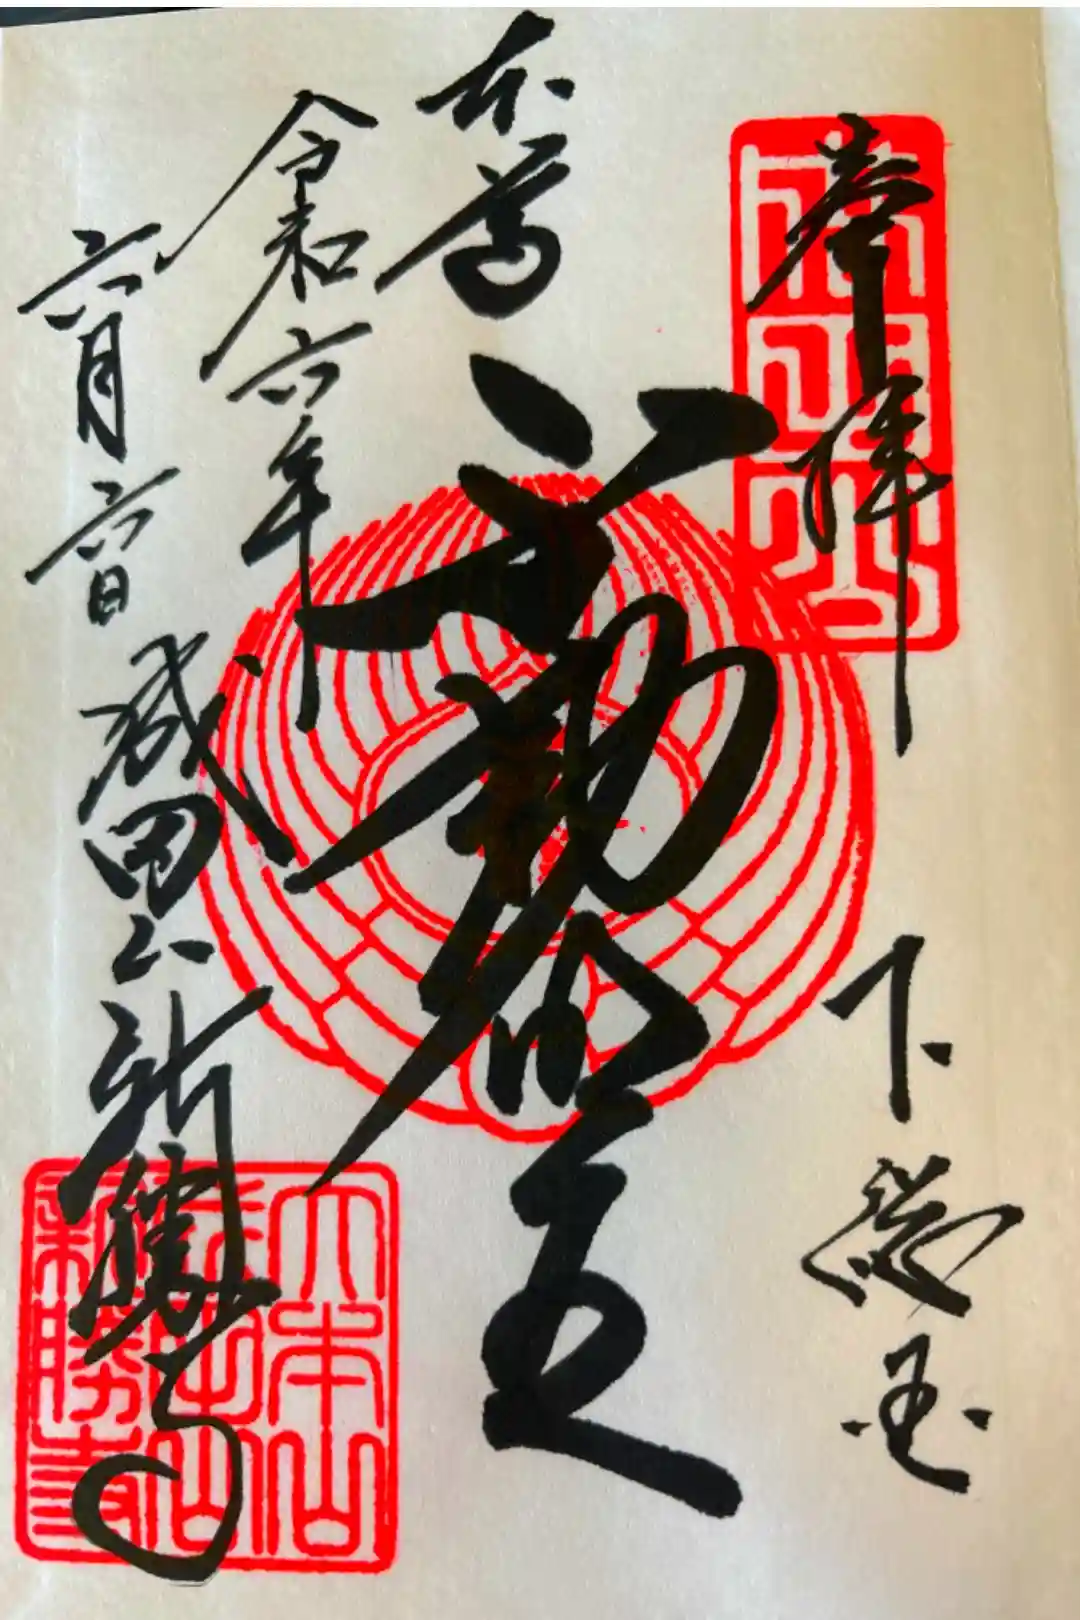 奉拝
下総国
本尊
不動明王
令和六年
六月六日
成田山新勝寺
大本山
成田山
新勝寺